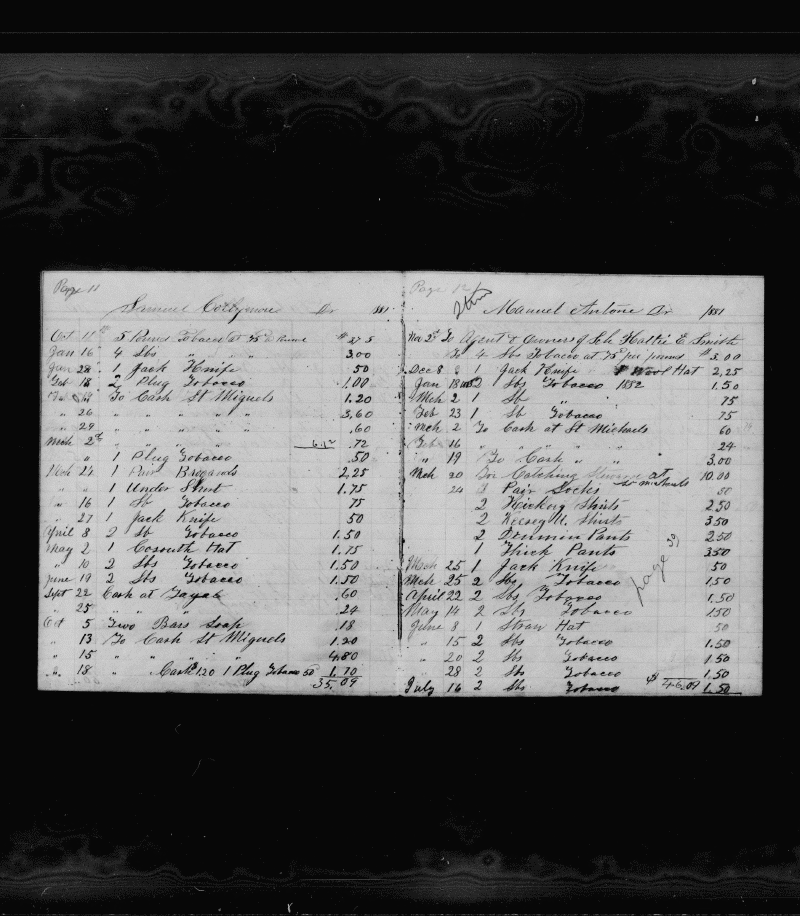 Page 11
Samuel Dr 1881
Oct 11th 5 Pound Tobacco at 75 c Pound $ 3.75
Jan 16 4 lbs " " " " 3.00
Jan 28 1 Jack Knife 50
Feb 18 2 Plug Tobacco 1.00
To Cash St Miguels 1.20
" 26 " " " " 3.60
" 29 " " " " .60
Mch 2d " " " " .72
" " 1 Plug Tobacco .50
Mch 24 1 Pair Brogands 2.25
" " 1 Under Shirt 1.75
" 16 1 lb Tobacco 75
" 27 1 Jack Knife 50
April 8 2 lb Tobacco 1.50
May 2 1 Cosouth Hat 1.75
" 10 2 lbs Tobacco 1.50
June 19 2 lbs Tobacco 1.50
Sept 22 Cash at Fayal .60
" 25 " " " .24
Oct 5 Two Bars Soap .18
" 13 To Cash St Miguels 1.20
" 15 " " " " 4.80
" 18 " Cash 1.20 1 Plug Tobacco 50 1.70
35.09
Page 12
Manuel Antone Dr 1881
Nov 2d To Agent & Owners of Sch Hattie E. Smith
To 4 lbs Tobacco at 75 per pound $ 3.00
Dec 8 1 Jack Knife 1 Wool Hat 2,25
Jan 18 1882 2 lbs Tobacco 1882 1.50
Mch 2 1 lb " 75
Feb 23 1 lb Tobacco 75
Mch 2 To Cash at St Michaels 60
Feb 16 " " " " 24
" 19 To Cash " " 3.00
Mch 20 For Catching at St Michaels 10.00
24 3 Pair Socks 50
2 Hickory Shirts 2.50
2 Kersey U. Shirts 3.50
2 Dennim Pants 2.50
1 Thick Pants 3.50
Mch 25 1 Jack Knife 50
Mch 25 2 lbs Tobacco 1.50
April 22 2 lbs Tobacco 1.50
May 14 2 lbs Tobacco 1.50
June 8 1 Straw Hat 50
" 15 2 lbs Tobacco 1.50
" 20 2 lbs Tobacco 1.50
28 2 lbs Tobacco 1.50
July 16 2 lbs Tobacco $ 46.09 1.50
page 39